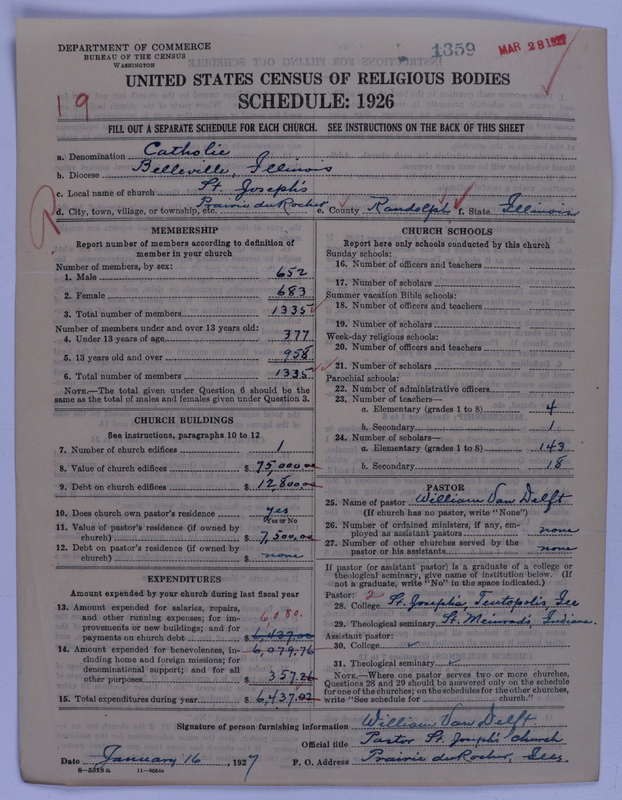 DEPARTMENT OF COMMERCE
BUREAU OF THE CENSUS
WASHINGTON
1359
MAR 28 1927
UNITED STATES CENSUS OF RELIGIOUS BODIES
SCHEDULE: 1926
19
FILL OUT A SEPARATE SCHEDULE FOR EACH CHURCH. SEE INSTRUCTIONS ON THE BACK OF THIS SHEET
a. Denomination Catholic
b. Diocese Belleville, Illinois
c. Local name of church St. Joseph's
d. City, town, village, or township, etc. Prairie du Rocher e. County Randolph f. State Illinois
MEMBERSHIP
Report number of members according to definition of
member in your church
Number of members, by sex:
1. Male 652
2. Female 683
3. Total number of members 1335
Number of members under and over 13 years old:
4. Under 13 years of age 377
5. 13 years old and over 958
6. Total number of members 1335
NOTE.—The total given under Question 6 should be the
same as the total of males and females given under Question 3.
CHURCH BUILDINGS
See instructions, paragraphs 10 to 12
7. Number of church edifices 1
8. Value of church edifices $ 75,000.00
9. Debt on church edifices $ 12,800.00
10. Does church own pastor's residence? yes
Yes or No
11. Value of pastor's residence (if owned by
church) $ 7,500.00
12. Debt on pastor's residence (if owned by
church) $ none
EXPENDITURES
Amount expended by your church during last fiscal year
13. Amount expended for salaries, repairs,
and other running expenses; for im- 6,080.
provements or new buildings; and for
payments on church debt $ 6,437.02
14. Amount expended for benevolences, in- 6,079.76
cluding home and foreign missions; for
denominational support; and for all
other purposes $ 357.26
15. Total expenditures during year $ 6,437.02
CHURCH SCHOOLS
Report here only schools conducted by this church
Sunday schools:
16. Number of officers and teachers
17. Number of scholars
Summer vacation Bible schools:
18. Number of officers and teachers
19. Number of scholars
Week-day religious schools:
20. Number of officers and teachers
21. Number of scholars
Parochial schools:
22. Number of administrative officers
23. Number of teachers—
a. Elementary (grades 1 to 8) 4
b. Secondary 1
24. Number of scholars—
a. Elementary (grades 1 to 8) 143
b. Secondary 18
PASTOR
25. Name of pastor William Van Delft
(If church has no pastor, write "None")
26. Number of ordained ministers, if any, em-
ployed as assistant pastors none
27. Number of other churches served by the
pastor or his assistants none
If pastor (or assistant pastor) is a graduate of a college or
theological seminary, give name of institution below. (If
not a graduate, write "No" in the space indicated.)
Pastor: 2
28. College St. Joseph's, Teutopolis, Ill
29. Theological seminary St. Meinrad's, Indiana.
Assistant pastor:
30. College
31. Theological seminary
NOTE.—Where one pastor serves two or more churches,
Questions 28 and 29 should be answered only on the schedule
for one of the churches; on the schedules for the other churches,
write "See schedule for church."
Signature of person furnishing information William Van Delft
Official title Pastor St. Joseph's church
Date January 16, 1927 P. O. Address Prairie du Rocher, Ills.